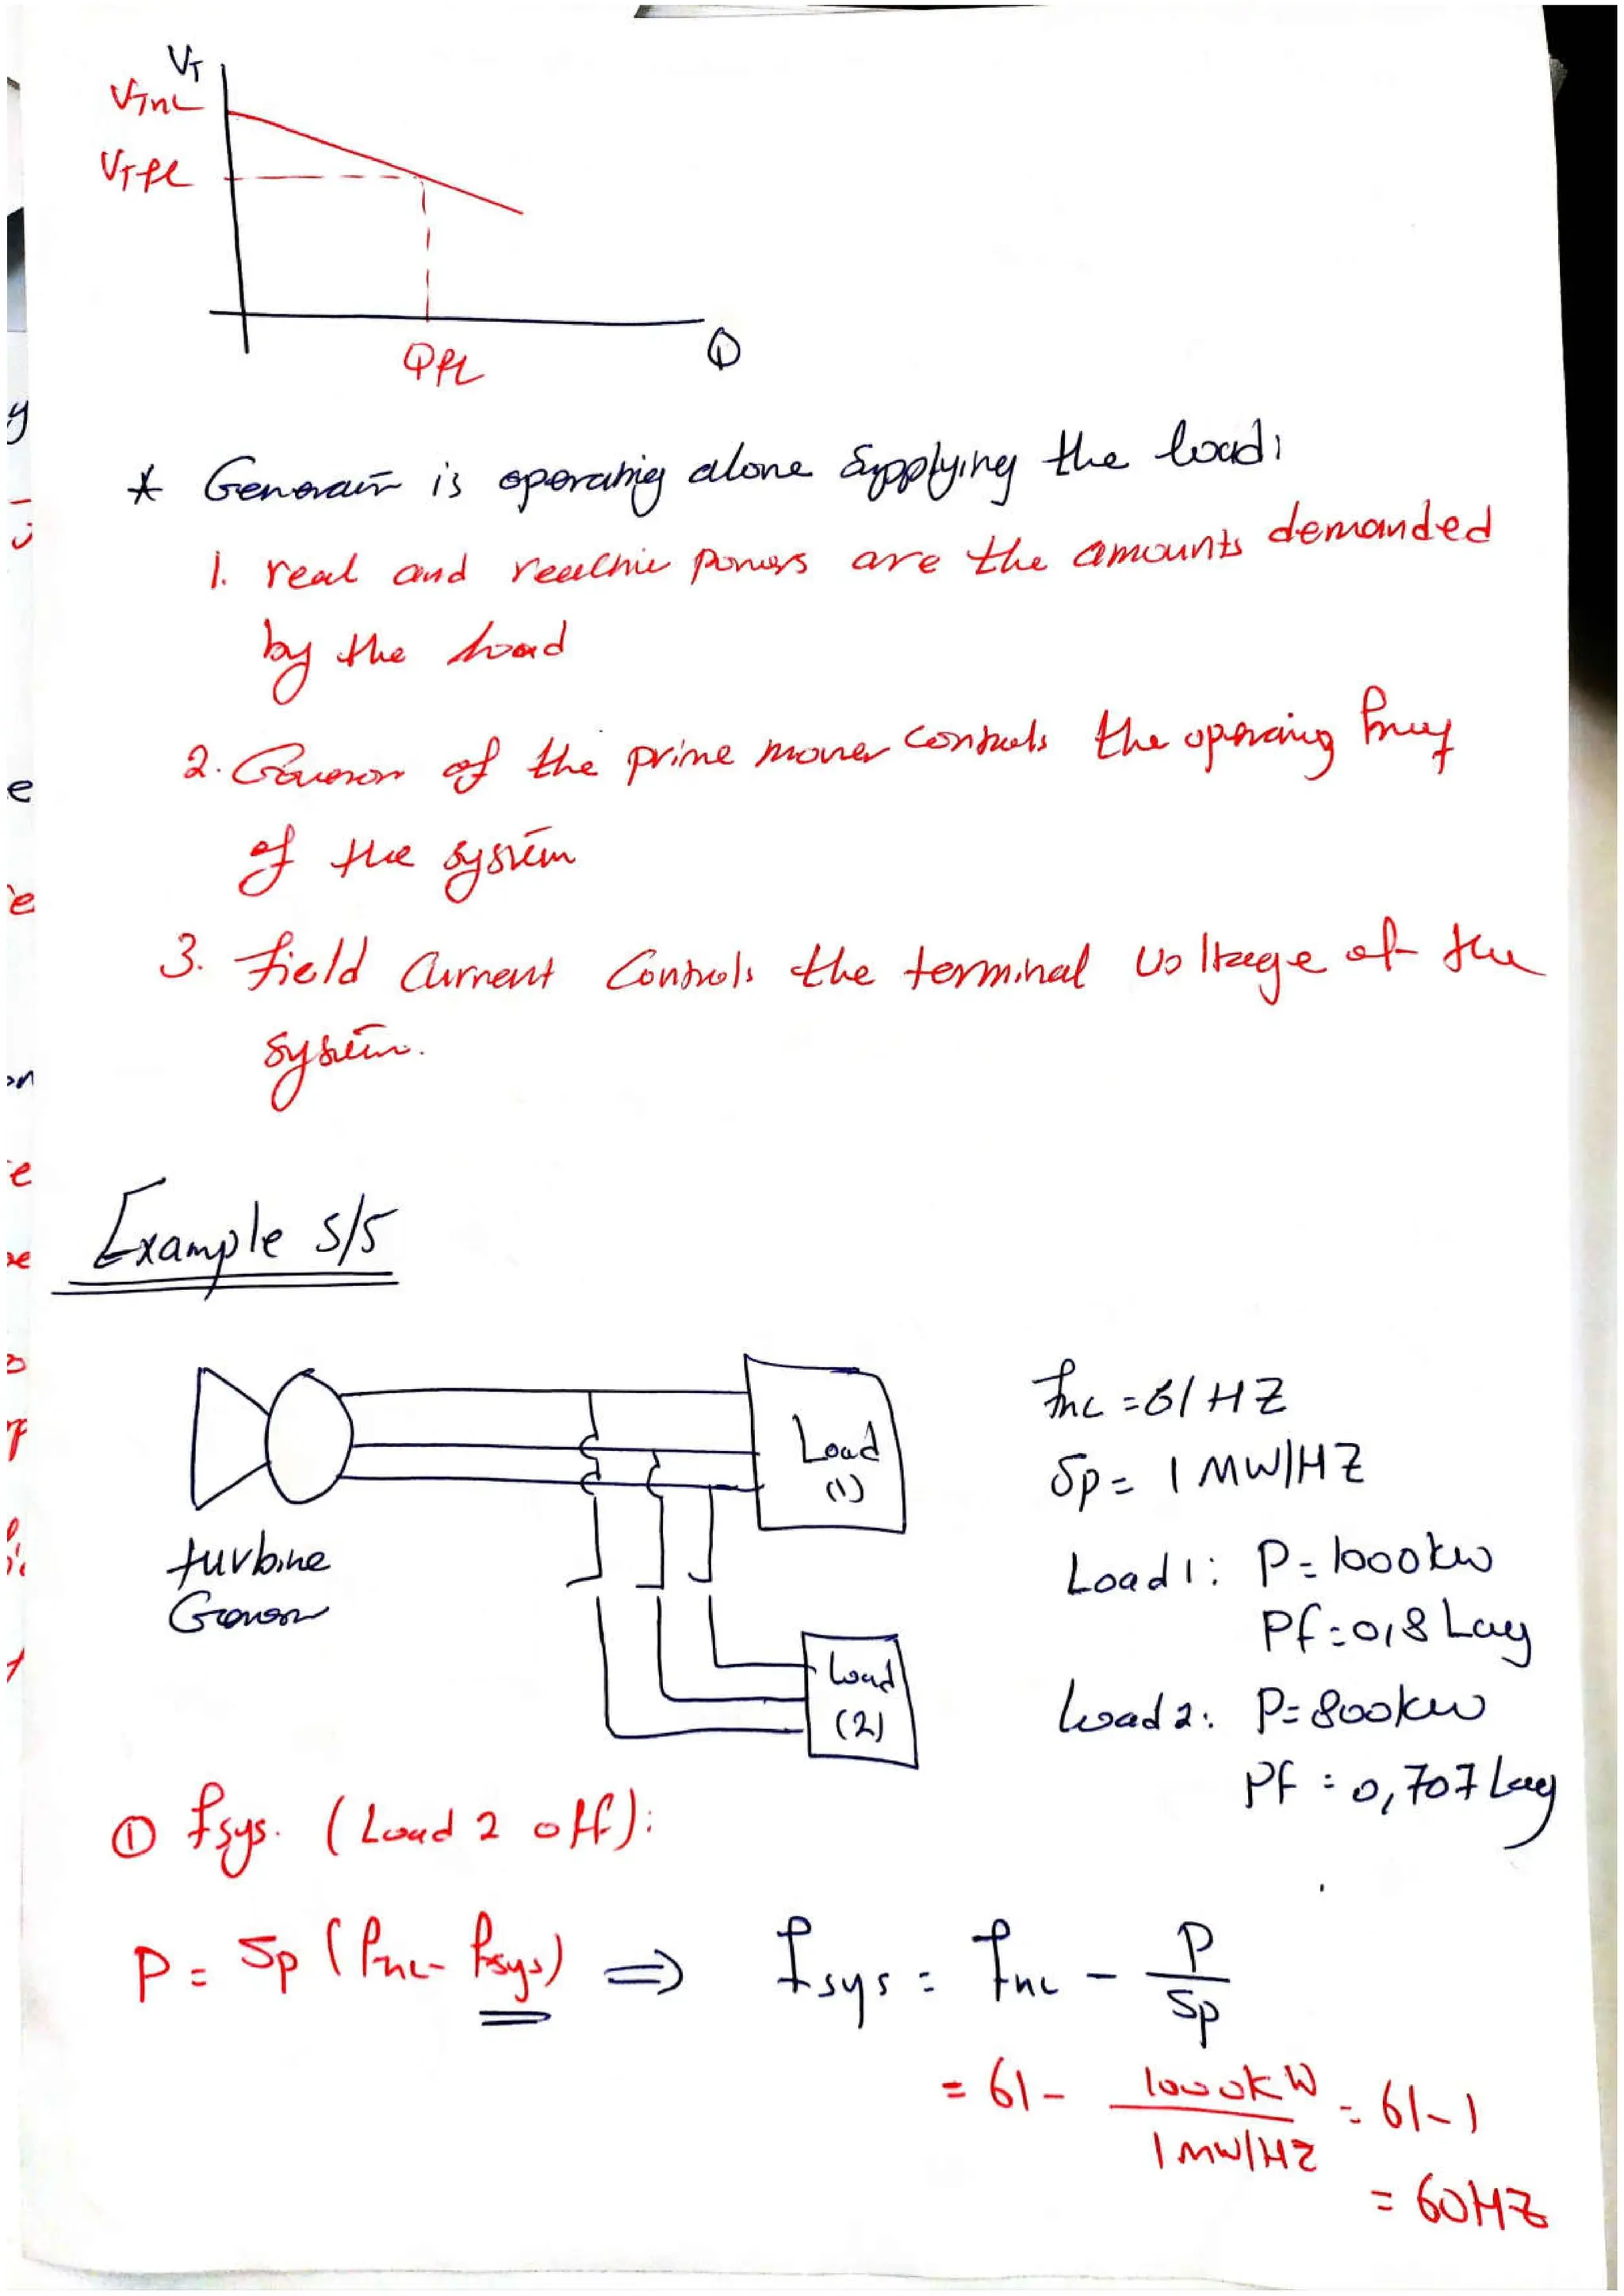 V_T
V_TnL
V_Tfl
Q_fL
Q
* Generator is operating alone supplying the load:
1. real and reactive powers are the amounts demanded
by the load
2. Governor of the prime mover controls the operating freq
of the system
3. field current controls the terminal voltage of the
system.
Example 5/5
Load
(1)
turbine
Generator
Load
(2)
f_nL = 61 HZ
Sp = 1 MW/HZ
Load 1: P = 1000 kw
Pf = 0,8 Lag
Load 2: P = 800 kw
Pf = 0,707 Lag
① f_sys. (Load 2 off):
P = Sp (f_nL - f_sys) ⇒ f_sys = f_nL - P/Sp
= 61 - 1000kW / 1 MW/HZ = 61 - 1
= 60HZ